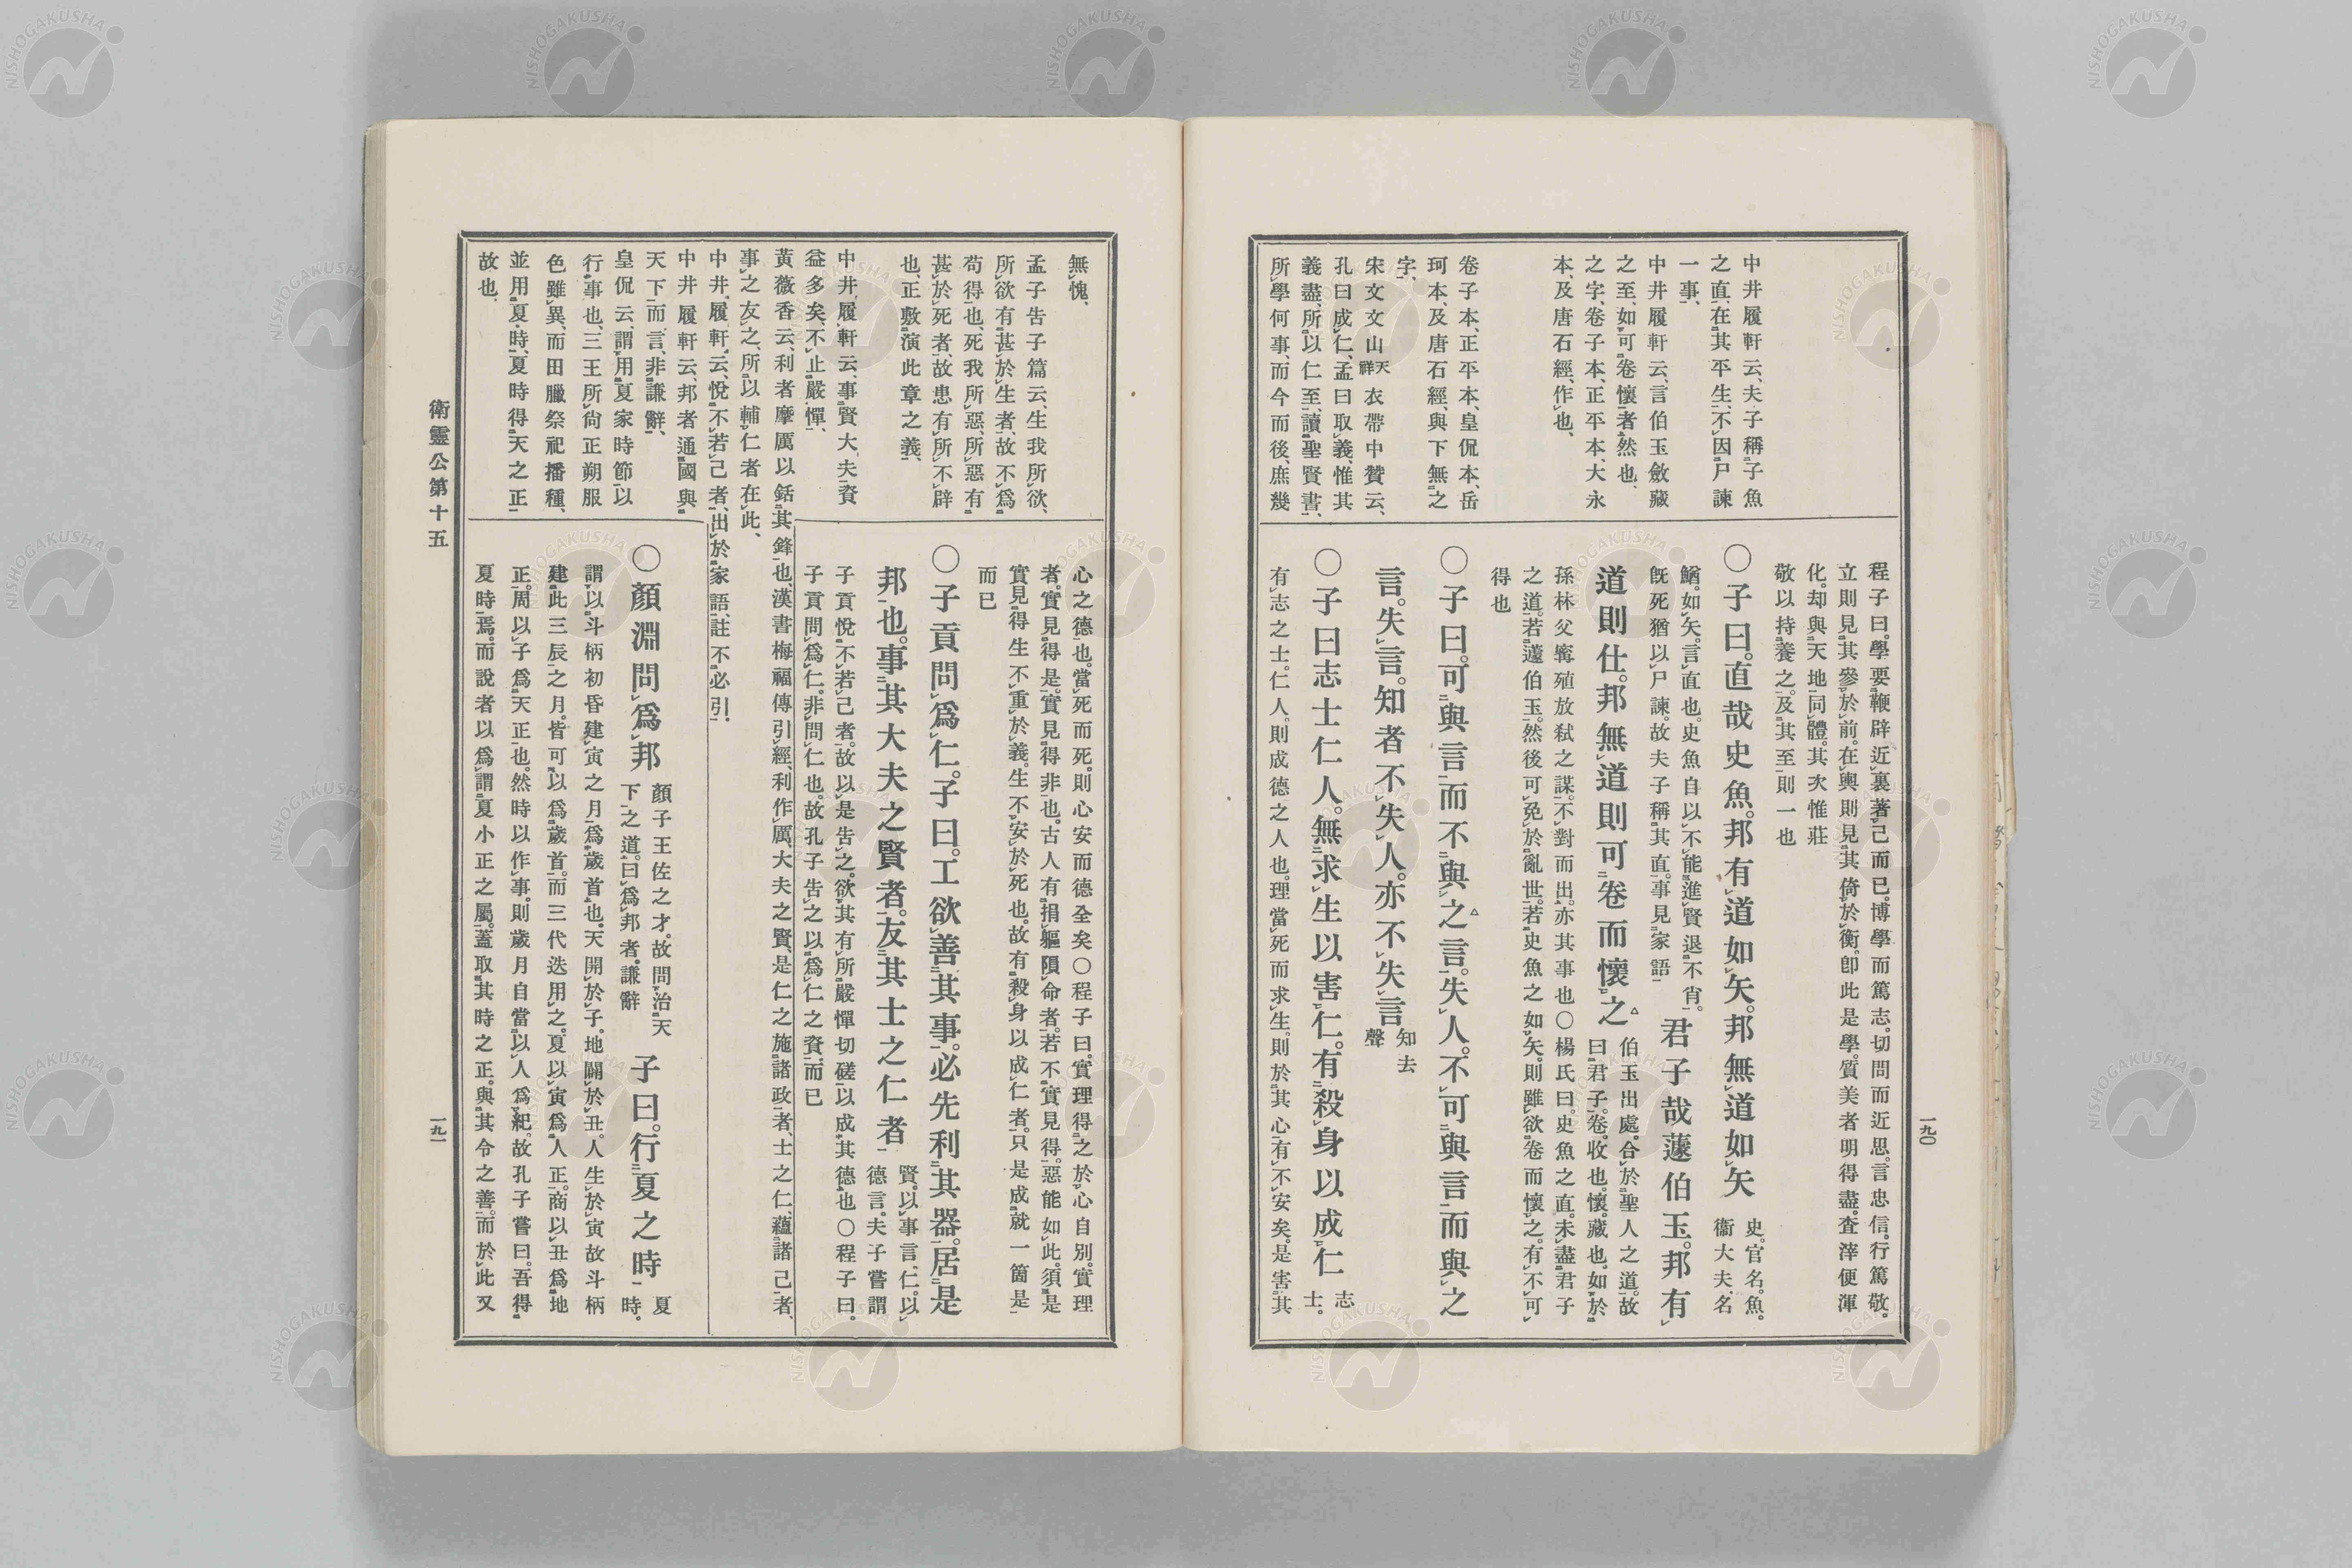 一九〇
中井履軒云、夫子稱子魚
之直、在其平生、不因尸諫
一事、
中井履軒云、言伯玉斂藏
之至、如可卷懷者然也、
之字、卷子本、正平本、大永
本、及唐石經、作也、
卷子本、正平本、皇侃本、岳
珂本、及唐石經、與下無之
字、
宋文文山天祥衣帶中贊云、
孔曰成仁、孟曰取義、惟其
義盡、所以仁至、讀聖賢書、
所學何事、而今而後、庶幾
程子曰。學要鞭辟近裏著己而已。博學而篤志。切問而近思。言忠信。行篤敬。
立則見其參於前。在輿則見其倚於衡。卽此是學。質美者明得盡。査滓便渾
化。却與天地同體。其次惟莊
敬以持養之。及其至則一也
〇子曰。直哉史魚。邦有道如矢。邦無道如矢
史。官名。魚。
衞大夫、名
鰌。如矢。言直也。史魚自以不能進賢退不肖。
旣死猶以尸諫。故夫子稱其直。事見家語
君子哉蘧伯玉。邦有
道則仕。邦無道則可卷而懷之
伯玉出處。合於聖人之道。故
曰君子。卷。收也。懷。藏也。如於
孫林父甯殖放弑之謀。不對而出。亦其事也〇楊氏曰。史魚之直。未盡君子
之道。若蘧伯玉。然後可免於亂世。若史魚之如矢。則雖欲卷而懷之。有不可
得也
〇子曰。可與言而不與之言。失人。不可與言而與之
言。失言。知者不失人。亦不失言
知去
聲
〇子曰志士仁人。無求生以害仁。有殺身以成仁
志
士。
有志之士。仁人。則成德之人也。理當死而求生。則於其心有不安矣。是害其
無愧、
孟子告子篇云生我所欲、
所欲有甚於生者、故不爲
苟得也、死我所惡、所惡有
甚於死者、故患有所不辟
也、正敷演此章之義、
中井履軒云、事賢大夫資
益多矣、不止嚴憚、
黃薇香云、利者摩厲以銛其鋒也、漢書梅福傳引經、利作厲、大夫之賢、是仁之施諸政者、士之仁、蘊諸己者、
事之友之、所以輔仁者在此、
中井履軒云、悅不若己者、出於家語、註不必引、
中井履軒云、邦者通國與
天下而言、非謙辭、
皇侃云、謂用夏家時節以
行事也、三王所尙正朔服
色雖異、而田臘祭祀播種、
並用夏時、夏時得天之正
故也、
心之德也。當死而死。則心安而德全矣〇程子曰。實理得之於心自別。實理
者。實見得是。實見得非也。古人有捐軀隕命者。若不實見得。惡能如此。須是
實見得生不重於義。生不安於死也。故有殺身以成仁者。只是成就一箇是
而已
〇子貢問爲仁。子曰。工欲善其事。必先利其器。居是
邦也。事其大夫之賢者。友其士之仁者
賢。以事言、仁。以
德言。夫子嘗謂
子貢悅不若己者。故以是告之。欲其有所嚴憚切磋以成其德也〇程子曰。
子貢問爲仁。非問仁也。故孔子告之以爲仁之資而已
〇顏淵問爲邦
顏子王佐之才。故問治天
下之道。曰爲邦者。謙辭
子曰。行夏之時
夏
時。
謂以斗柄初昏建寅之月爲歲首也。天開於子。地闢於丑。人生於寅故斗柄
建此三辰之月。皆可以爲歲首。而三代迭用之。夏以寅爲人正。商以丑爲地
正。周以子爲天正也。然時以作事。則歲月自當以人爲紀。故孔子嘗曰。吾得
夏時焉。而說者以爲謂夏小正之屬。蓋取其時之正。與其令之善。而於此又
衞靈公第十五
一九一